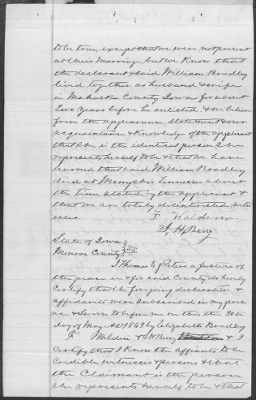 to be true, except that we were not present
at their Marriage but we Know that
the declarant & said William Bradley
lived together as husband & wife
in Mahaska County Iowa for about
two years before he enlisted & we believe
from the appearance statement & our
acquaintance & Knowledge of the applicant
that she is the identical person she
represents herself to be & that we have
learned that said William Bradley
died at Memphis Tennessee about
the time stated by the applicant &
that we are totally disinterested wit-
nesses.
F. Walden
A. H. Berry
State of Iowa
Monroe County
I Thomas E Peters a Justice of
the peace in & for said County do hereby
Certify that the forgoing declaration &
affidavits were subscribed in my pres
ence & sworn to before me on this the 30th
day of May AD 1863 by Elizabeth Bradley
F Walden & A H Berry & I
Certify that I Know the affiants to be
Credible witnesses & persons & that
the Claimant is the person
she represents herself to be & that